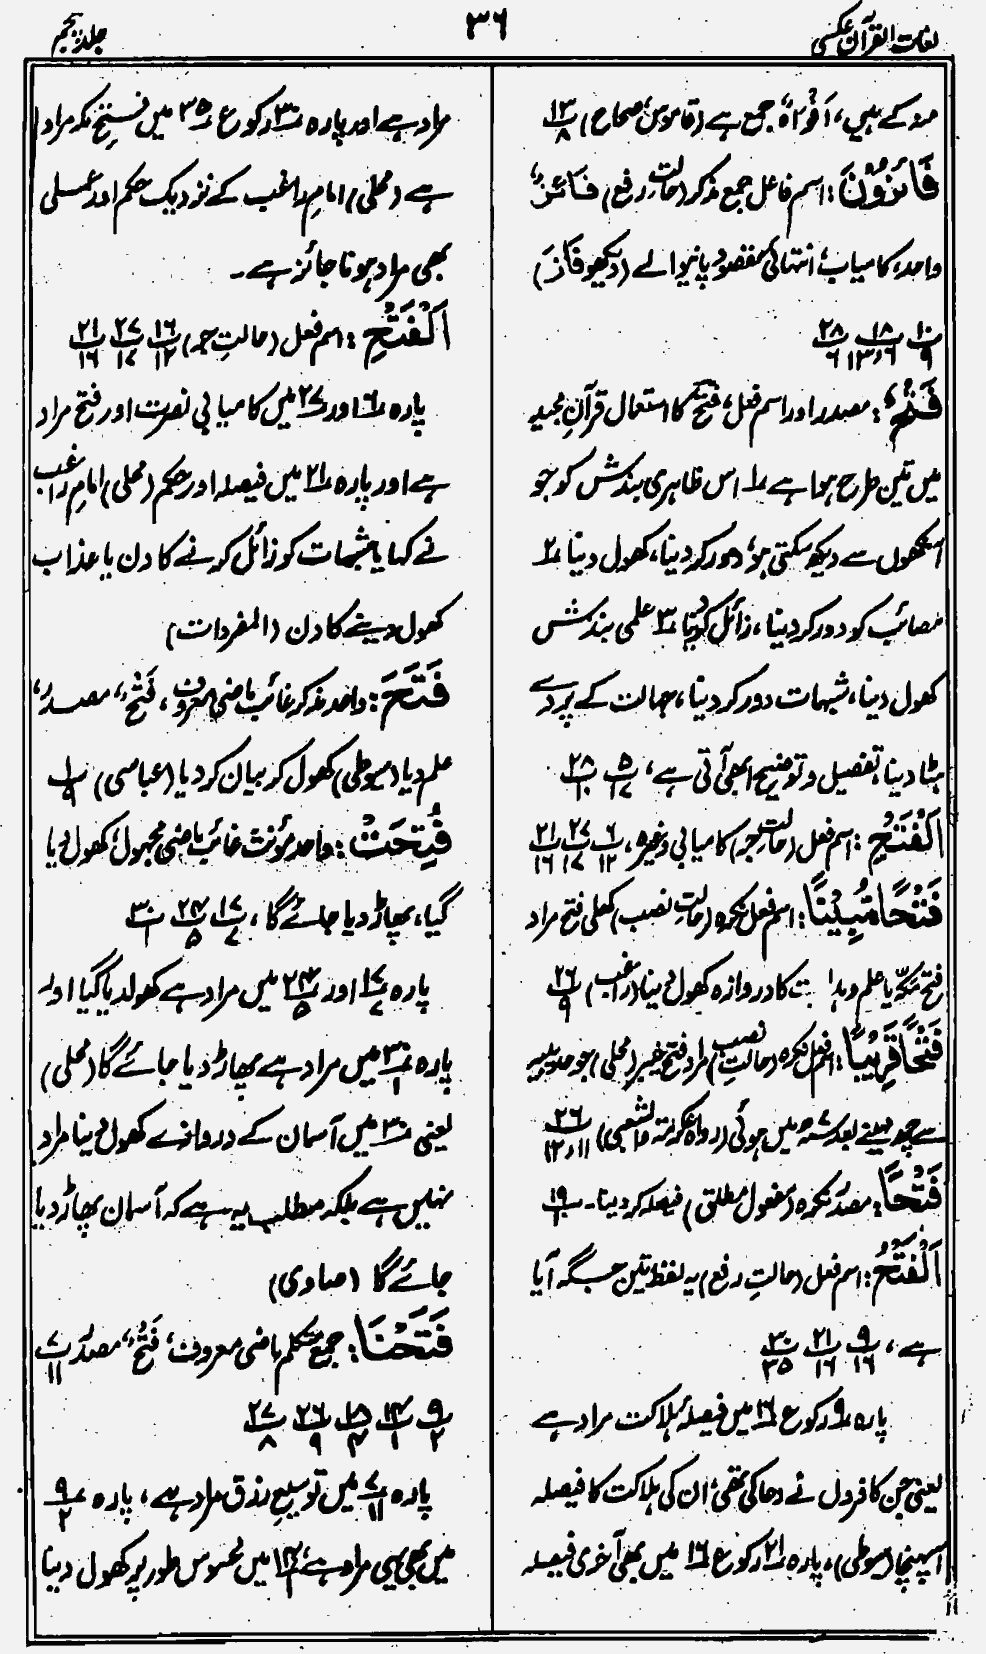 لغات القرآن عکسی
۳۶
جلد پنجم
منہ کے ہیں، اَفْوَاہٌ جمع ہے (قاموس، صحاح) ۱۳/۸
فَائِزُوْنَ: اسم فاعل جمع مذکر (حالتِ رفع) فَائِزٌ
واحد، کامیاب، انتہائی مقصود پانیوالے (دیکھو فَازَ)
۱۰/۹ ۱۸/۶،۱۳ ۲۸/۶
فَتْحٌ: مصدر اور اسم فعل، فتح کا استعمال قرآن مجید
میں تین طرح ہوا ہے ۱؎ اس ظاہری بندش کو جو
آنکھوں سے دیکھ سکتی ہو، دور کر دینا، کھول دینا، ۲؎
مصائب کو دور کر دینا، زائل کر دینا ۳؎ علمی بندشیں
کھول دینا، شبہات دور کر دینا، جہالت کے پردے
ہٹا دینا، تفصیل و توضیح ابھی آتی ہے، ۵/۱۷ ۲۸/۱۰
اَلْفَتْحِ: اسم فعل (حالتِ جر) کامیابی وغیرہ، ۶/۱۲ ۲۷/۱۷ ۲۱/۱۶
فَتْحًا مُّبِیْنًا: اسم فعل نکرہ (حالتِ نصب) کھلی فتح مراد
فتح مکہ یا علم و ہدایت کا دروازہ کھول دینا (راغب) ۲۶/۹
فَتْحًا قَرِیْبًا: اسم فعل نکرہ (حالتِ نصب) مراد فتح خیبر (محلی) جو حدیبیہ
سے چھ مہینے بعد ۷ھ میں ہوئی (رواہ عکرمۃ والشعبی) ۲۶/۱۱،۱۲
فَتْحًا: مصدر نکرہ (مفعول مطلق) فیصلہ کر دینا۔ ۱۹/۱۰
اَلْفَتْحُ: اسم فعل (حالتِ رفع) یہ لفظ تین جگہ آیا
ہے، ۹/۱۶ ۲۱/۱۶ ۳۰/۳۵
پارہ ۹ رکوع ۱۶ میں فیصلہ ہلاکت مراد ہے
یعنی جن کافروں نے دعا کی تھی، ان کی ہلاکت کا فیصلہ
آ پہنچا (سیوطی)، پارہ ۲۱ رکوع ۱۶ میں بھی آخری فیصلہ
مراد ہے اور پارہ ۳۰ رکوع ۳۵ میں فتح مکہ مراد
ہے (محلی) امام راغب کے نزدیک حکم اور علمی
بھی مراد ہونا جائز ہے۔
اَلْفَتْحِ: اسم فعل (حالتِ جر) ۱۶/۱۲ ۲۷/۱۷ ۲۱/۱۶
پارہ ۶ اور ۲۷ میں کامیابی نصرت اور فتح مراد
ہے اور پارہ ۲۱ میں فیصلہ اور حکم (محلی) امام راغب
نے کہا یا شبہات کو زائل کرنے کا دن یا عذاب
کھول دینے کا دن (المفردات)
فَتَحَ: واحد مذکر غائب ماضی معروف، فَتْحٌ، مصدر،
علم دیا (سیوطی) کھول کر بیان کر دیا (عباسی) ۱/۹
فُتِحَتْ: واحد مؤنث غائب ماضی مجہول، کھول دیا
گیا، پھاڑ دیا جائے گا، ۱۷/۷ ۲۴/۵ ۳۰/۱
پارہ ۱۷/۷ اور ۲۴/۵ میں مراد ہے کھولدیا گیا اور
پارہ ۳۰/۱ میں مراد ہے پھاڑ دیا جائے گا (محلی)
یعنی ۳۰ میں آسمان کے دروازے کھول دینا مراد
نہیں ہے بلکہ مطلب یہ ہے کہ آسمان پھاڑ دیا
جائے گا (صاوی)
فَتَحْنَا: جمع متکلم ماضی معروف، فَتْحٌ، مصدر ۷/۱۱
۹/۲ ۱۴/۱ ۱۸/۴ ۲۶/۹ ۲۷/۸
پارہ ۷/۱۱ میں توسیع رزق مراد ہے، پارہ ۹/۲
میں بھی یہی مراد ہے، ۱۴/۱ میں محسوس طور پر کھول دینا